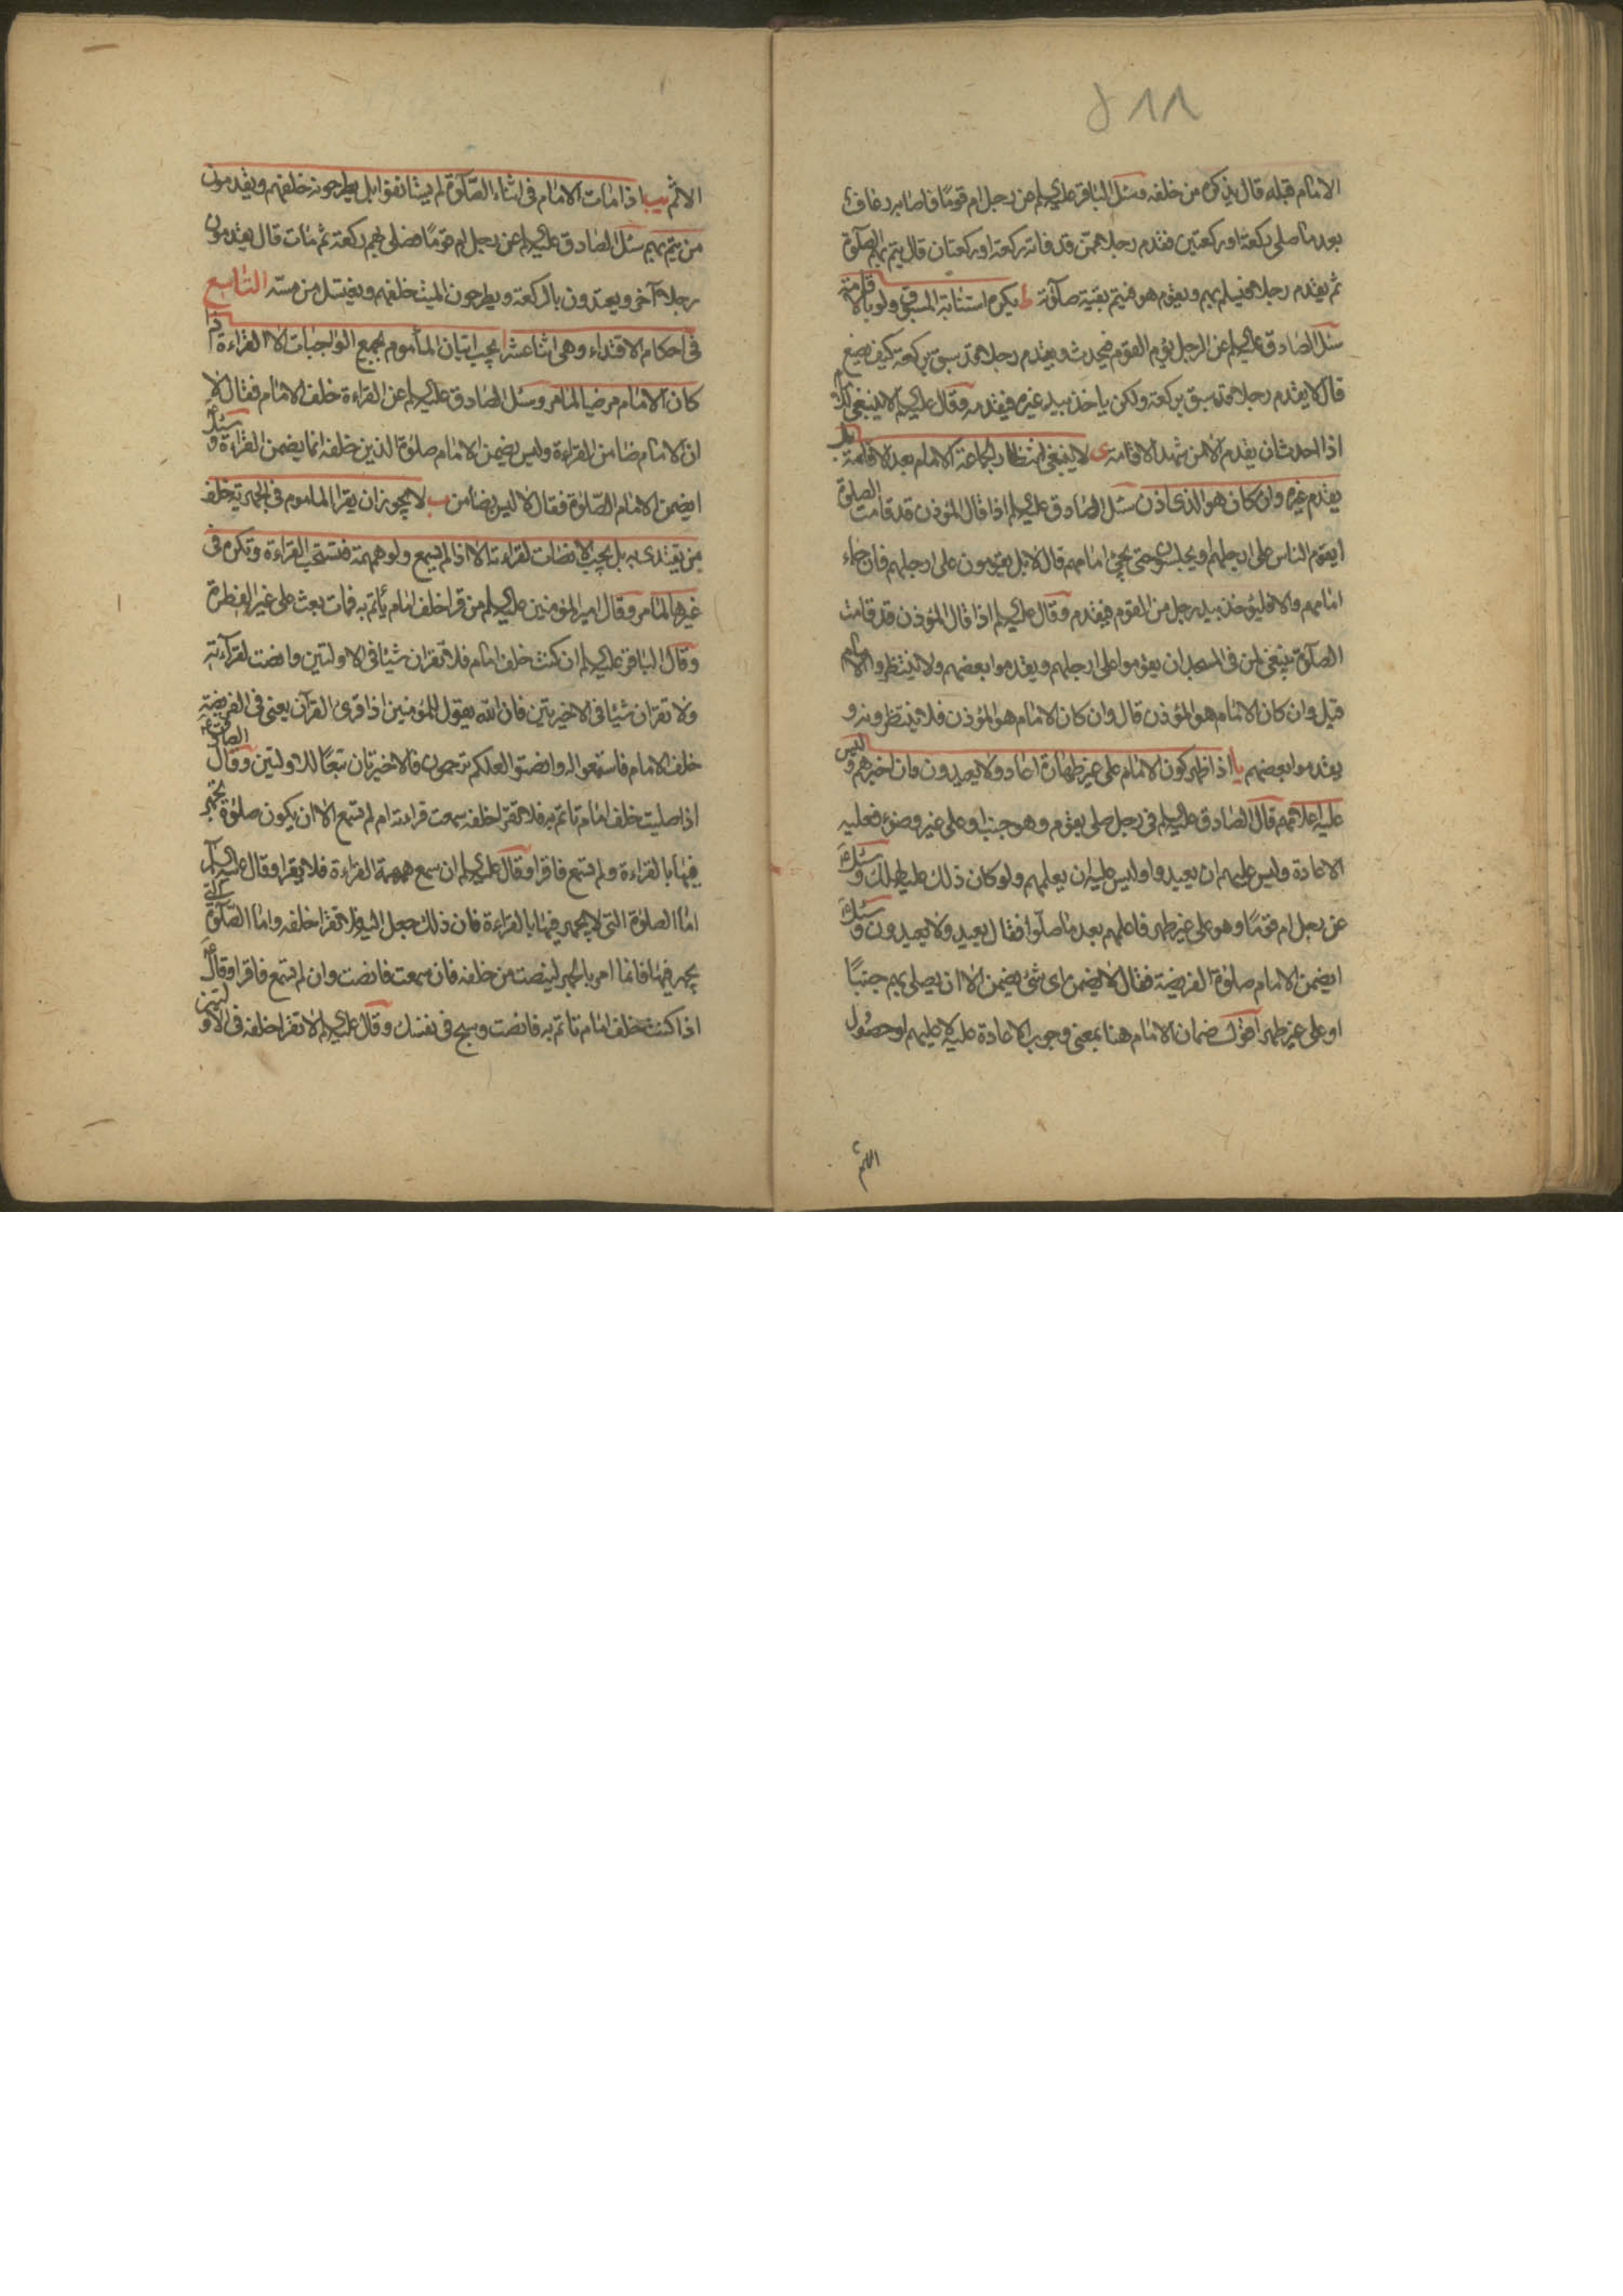 ٥١١
الامام قبله قال يذكره من خلفه وسئل الباقر عليه السلم عن رجل ام قوما فاصابه رعاف
بعد ما صلى ركعة او ركعتين فقدم رجلا ممن قد فاته ركعة او ركعتان قال يتم بهم الصلوة
ثم يقدم رجلا فيسلم بهم ويقوم هو فيتم بقية صلاته ط يكره استنابة المسبوق ولو بالاقامة
سئل الصادق عليه السلم عن الرجل يؤم القوم فيحدث ويقدم رجلا قد سبق بركعة كيف يصنع
قال لا يقدم رجلا قد سبق بركعة ولكن ياخذ بيد غيره فيقدمه وقال عليه السلم لا ينبغي للامام
اذا احدث ان يقدم الا من شهد الاقامة ى لا ينبغي انتظار الجماعة الامام بعد الاقامة بل
يقدم غيره وان كان هو الذى اذن سئل الصادق عليه السلم اذا قال المؤذن قد قامت الصلوة
ايقوم الناس على ارجلهم او يجلسون حتى يجئ امامهم قال لا بل يقومون على ارجلهم فان جاء
امامهم والا فليؤخذ بيد رجل من القوم فيقدم وقال عليه السلم اذا قال المؤذن قد قامت
الصلوة ينبغي لمن في المسجد ان يقوموا على ارجلهم ويقدموا بعضهم ولا ينتظروا الامام
قيل وان كان الامام هو المؤذن قال وان كان الامام هو المؤذن فلا ينتظرونه و
يقدموا بعضهم يا اذا ظهر كون الامام على غير طهارة اعاد ولا يعيدون وان اخبرهم وليس
عليه اعلامهم قال الصادق عليه السلم في رجل صلى بقوم وهو جنب او على غير وضوء فعليه
الاعادة وليس عليهم ان يعيدوا وليس عليه ان يعلمهم ولو كان ذلك عليه لهلك وسئل
عن رجل ام قوما وهو على غير طهر فاعلمهم بعد ما صلوا فقال يعيد ولا يعيدون وسئل
ايضمن الامام صلوة الفريضة فقال لا يضمن اى شئ يضمن الا ان يصلى بهم جنبًا
او على غير طهر اقول ضمان الامام هنا بمعنى وجوب الاعادة عليه لا عليهم او حصول
الاثم
الاثم يب اذا مات الامام في اثناء الصلوة لم يستانفوا بل يطرحونه خلفهم ويقدمون
من يتم بهم سئل الصادق عليه السلم عن رجل ام قومًا فصلى بهم ركعة ثم مات قال يقدمون
رجلا آخر ويعتدون بالركعة ويطرحون الميت خلفهم ويغتسل من مسه التاسع
في احكام الاقتداء وهى اثنا عشر ا يجب اتيان المأموم بجميع الواجبات الا القراءة اذا
كان الامام مرضيا لما مر وسئل الصادق عليه السلم عن القراءة خلف الامام فقال لا
ان الامام ضامن للقراءة وليس يضمن الامام صلوة الذين خلفه انما يضمن القراءة وسئل
ايضمن الامام الصلوة فقال لا ليس بضامن ب لا يجوز ان يقرا الماموم في الجهرية خلف
من يقتدى به بل يجب الانصات لقراءته الا اذا لم يسمع ولو همهمة فتستحب القراءة وتكره في
غيرها لما مر وقال امير المؤمنين عليه السلم من قرا خلف امام يأتم به فمات بعث على غير الفطرة
وقال الباقر عليه السلم ان كنت خلف امام فلا تقران شيئا في الاولتين وانصت لقرائته
ولا تقران شيئا في الاخيرتين فان الله يقول للمؤمنين اذا قرئ القرآن يعنى في الفريضة
خلف الامام فاستمعوا له وانصتوا لعلكم ترحمون فالاخيرتان تبعًا للاولتين وقال الصادق ع
اذا صليت خلف امام تاتم به فلا تقرا خلفه سمعت قراءته ام لم تسمع الا ان يكون صلوة تجهر
فيها بالقراءة ولم تسمع فاقرا وقال عليه السلم ان سمع همهمة القراءة فلا يقرا وقال عليه السلم
اما الصلوة التى لا يجهر فيها بالقراءة فان ذلك جعل اليه فلا تقرا خلفه واما الصلوة التى
يجهر فيها فانما امر بالجهر لينصت من خلفه فان سمعت فانصت وان لم تسمع فاقرا وقال ع
اذا كنت خلف امام تاتم به فانصت وسبح في نفسك وقال عليه السلم لا تقرا خلفه في الاولتين